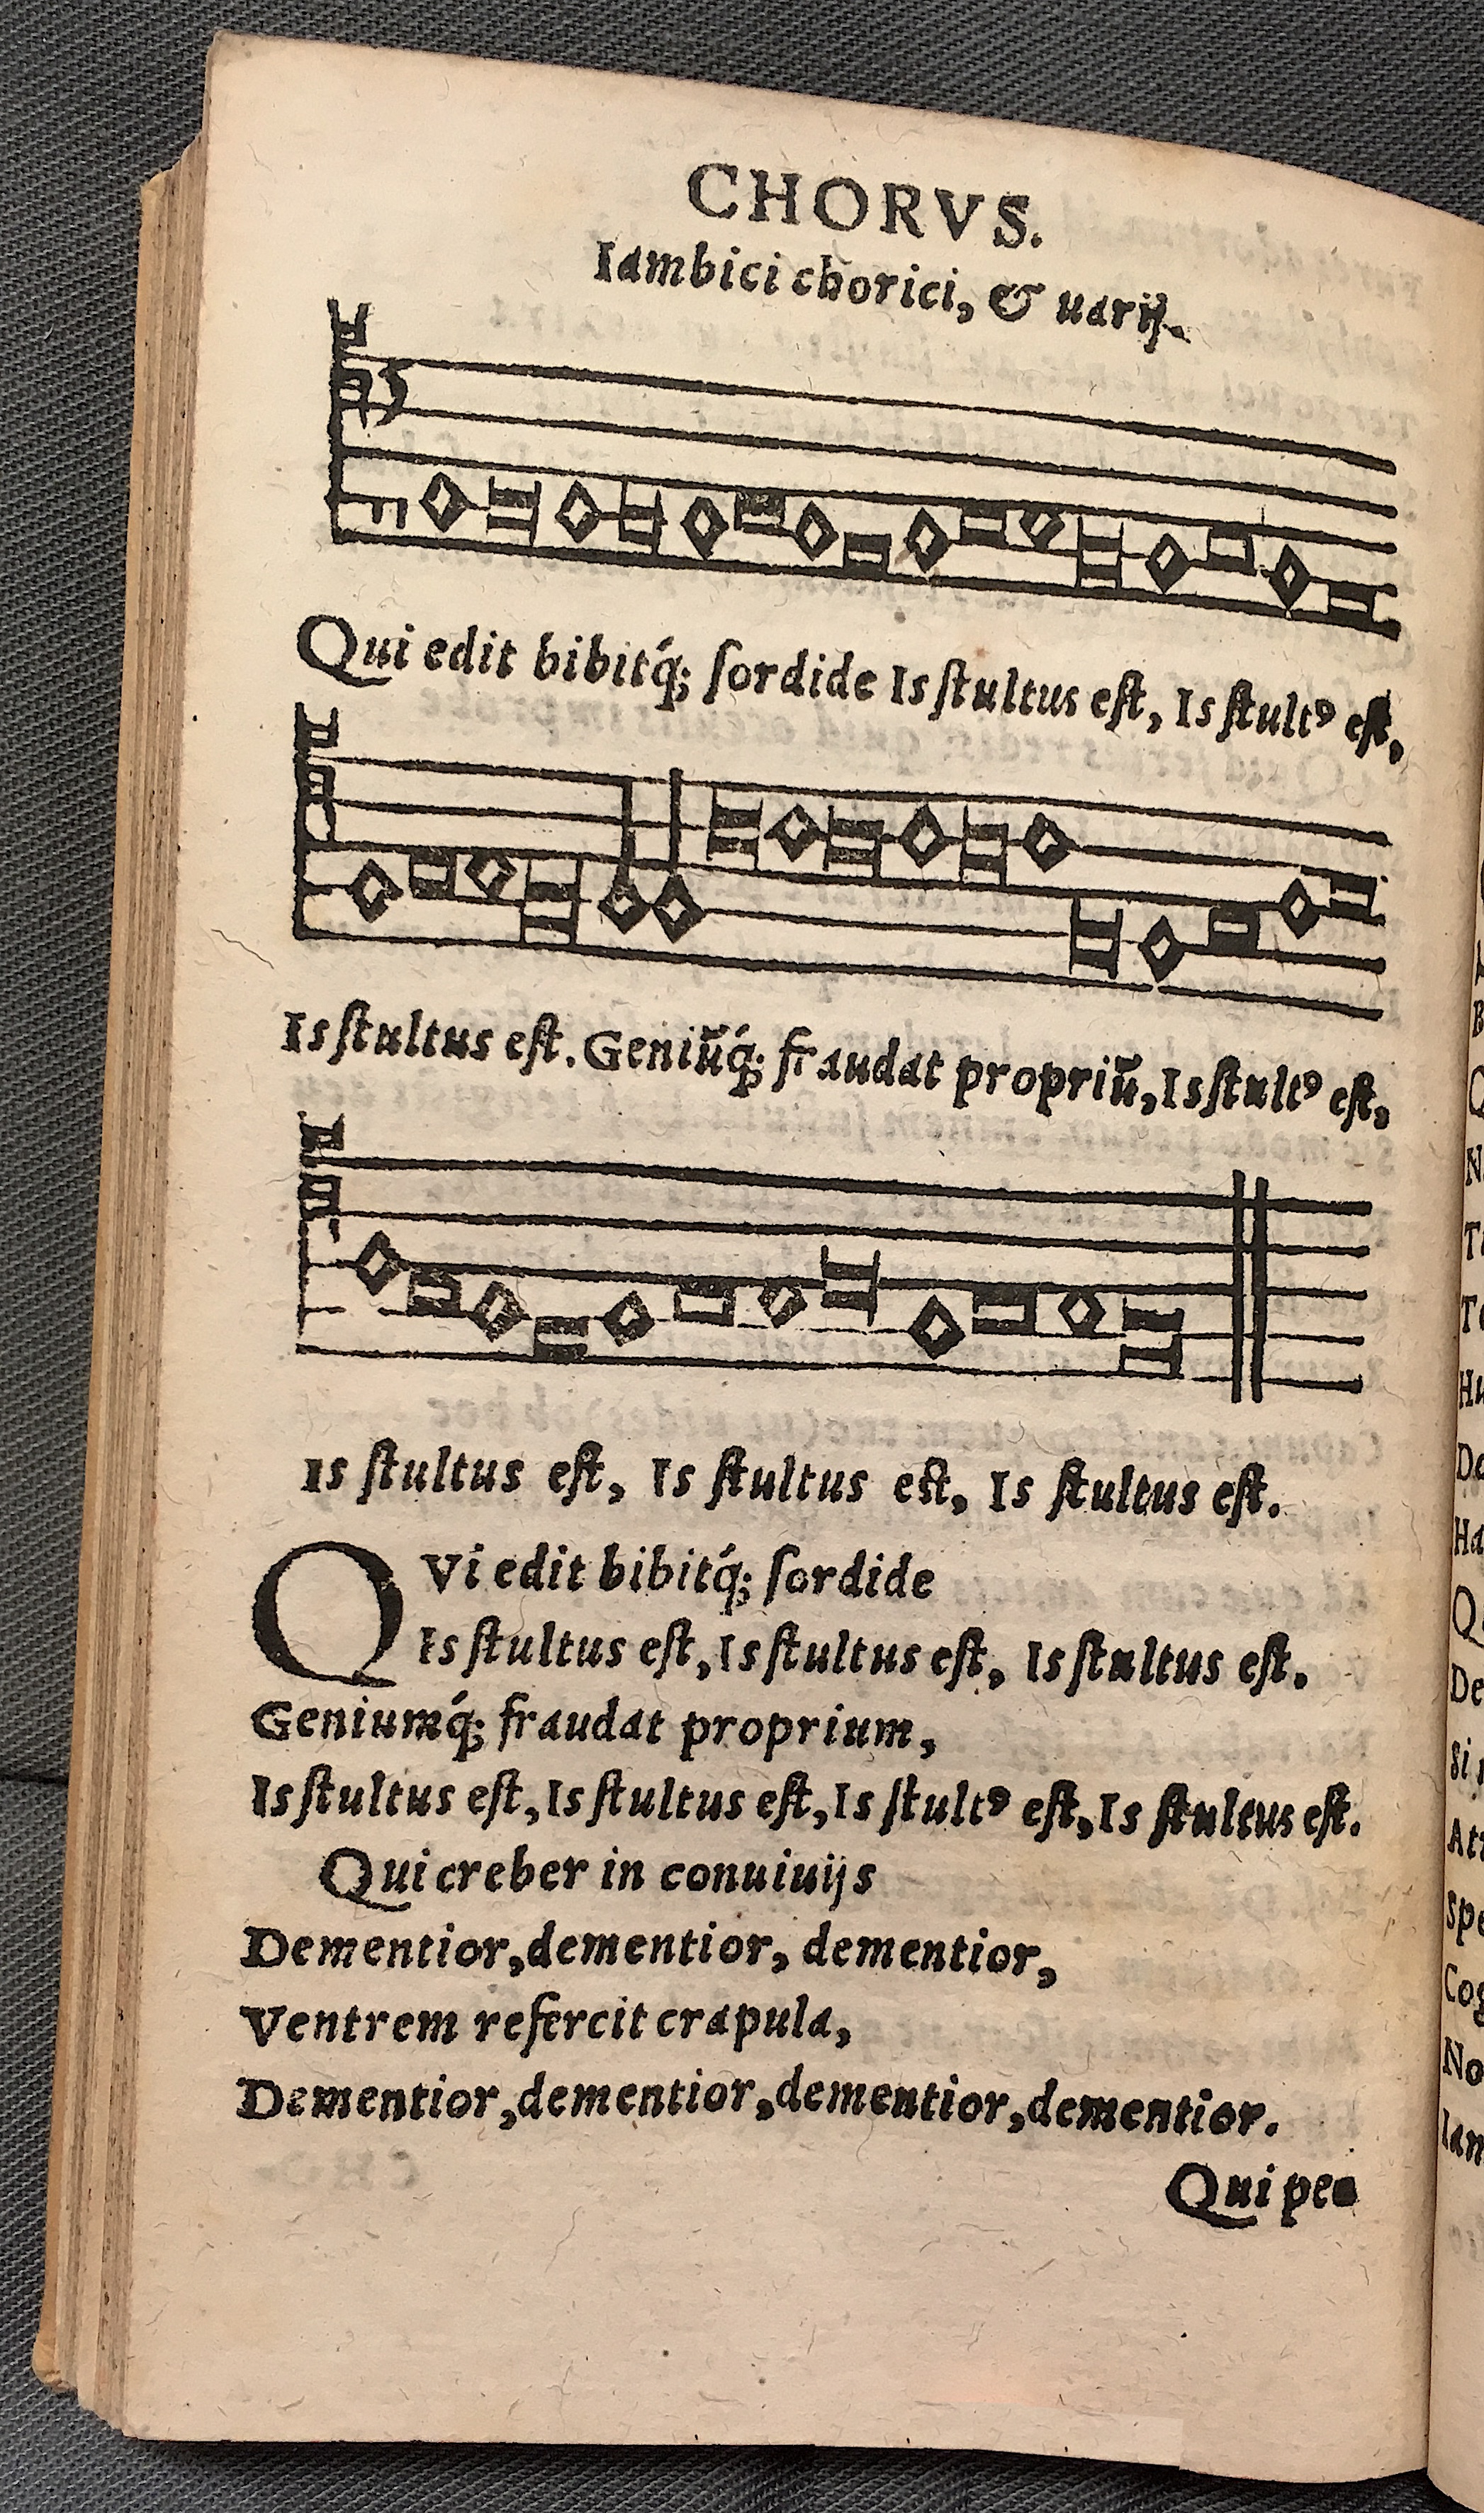 CHORVS.
Iambici chorici, & uarij.
Qui edit bibitq́; ſordide Is ſtultus eſt, Is ſtultꝰ eſt,
Is ſtultus eſt. Geniũq́; fraudat propriũ, Is ſtultꝰ eſt,
Is ſtultus eſt, Is ſtultus eſt, Is ſtultus eſt.
QVi edit bibitq́; ſordide
Is ſtultus eſt, Is ſtultus eſt, Is ſtultus eſt.
Geniumq́; fraudat proprium,
Is ſtultus eſt, Is ſtultus eſt, Is ſtultꝰ eſt, Is ſtultus eſt.
Qui creber in conuiuijs
Dementior, dementior, dementior,
Ventrem refercit crapula,
Dementior, dementior, dementior, dementior.
Qui